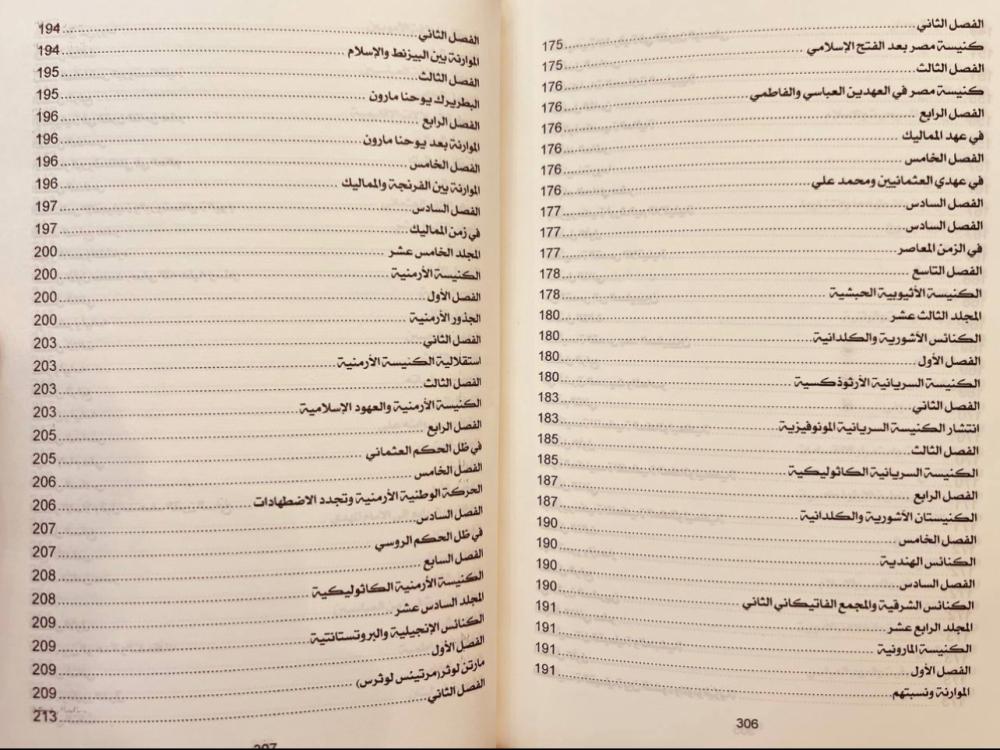 الفصل الثاني 175
كنيسة مصر بعد الفتح الإسلامي 175
الفصل الثالث 176
كنيسة مصر في العهدين العباسي والفاطمي 176
الفصل الرابع 176
في عهد المماليك 176
الفصل الخامس 176
في عهدي العثمانيين ومحمد علي 176
الفصل السادس 177
الفصل السادس 177
في الزمن المعاصر 177
الفصل التاسع 178
الكنيسة الأثيوبية الحبشية 178
المجلد الثالث عشر 180
الكنائس الأشورية والكلدانية 180
الفصل الأول 180
الكنيسة السريانية الأرثوذكسية 180
الفصل الثاني 183
انتشار الكنيسة السريانية المونوفيزية 183
الفصل الثالث 185
الكنيسة السريانية الكاثوليكية 185
الفصل الرابع 187
الكنيستان الأشورية والكلدانية 187
الفصل الخامس 190
الكنائس الهندية 190
الفصل السادس 190
الكنائس الشرقية والمجمع الفاتيكاني الثاني 190
المجلد الرابع عشر 191
الكنيسة المارونية 191
الفصل الأول 191
الموارنة ونسبتهم 191
306
الفصل الثاني 194
الموارنة بين البيزنط والإسلام 194
الفصل الثالث 195
البطريرك يوحنا مارون 195
الفصل الرابع 196
الموارنة بعد يوحنا مارون 196
الفصل الخامس 196
الموارنة بين الفرنجة والمماليك 196
الفصل السادس 197
في زمن المماليك 197
المجلد الخامس عشر 200
الكنيسة الأرمنية 200
الفصل الأول 200
الجذور الأرمنية 200
الفصل الثاني 203
استقلالية الكنيسة الأرمنية 203
الفصل الثالث 203
الكنيسة الأرمنية والعهود الإسلامية 203
الفصل الرابع 205
في ظل الحكم العثماني 205
الفصل الخامس 206
الحركة الوطنية الأرمنية وتجدد الاضطهادات 206
الفصل السادس 207
في ظل الحكم الروسي 207
الفصل السابع 208
الكنيسة الأرمنية الكاثوليكية 208
المجلد السادس عشر 209
الكنائس الإنجيلية والبروتستانتية 209
الفصل الأول 209
مارتن لوثر(مرتينس لوثرس) 209
الفصل الثاني 213
307